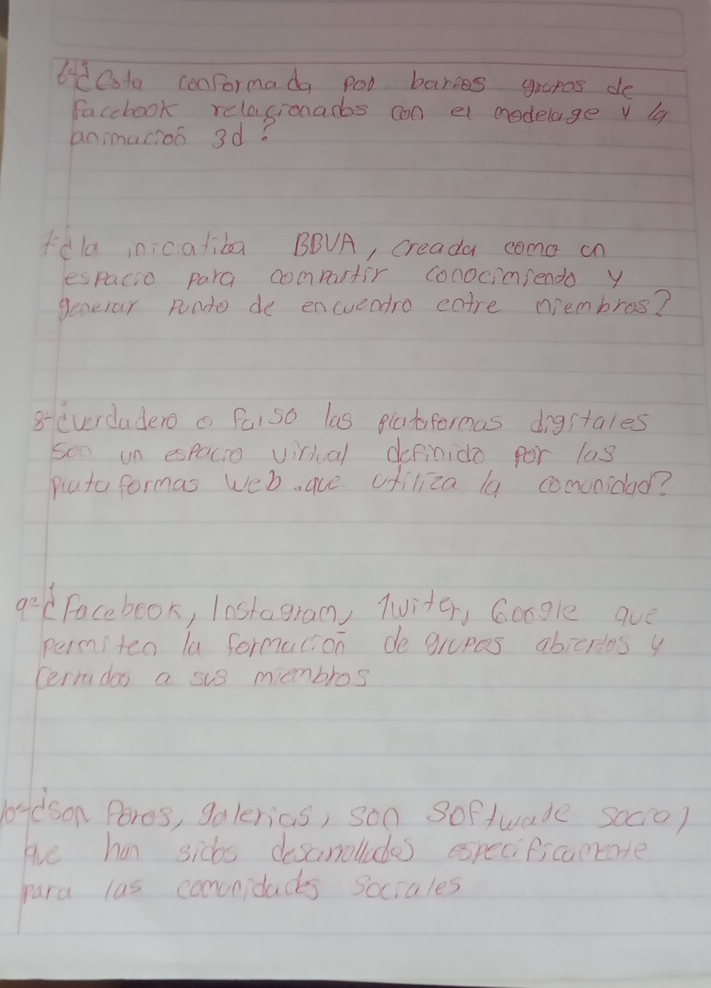 6-¿Esta conformada por barios grupos de
facebook relacionados con el modelage y la
animacion 3d?
7-¿la inicatiba BBVA, creada como on
espacio para compartir conocimiendo y
generar punto de encuentro entre miembros?
8-¿verdadero o falso las plataformas digitales
son un espacio virtual definido por las
plataformas web que utiliza la comunidad?
9-¿Facebook, Instagram, Twiter, Google que
permiten la formacion de grupos abiertos y
cerrados a sus miembros
10-¿son Foros, galerias, son software social
que han sidos desarrollados especificamente
para las comunidades sociales